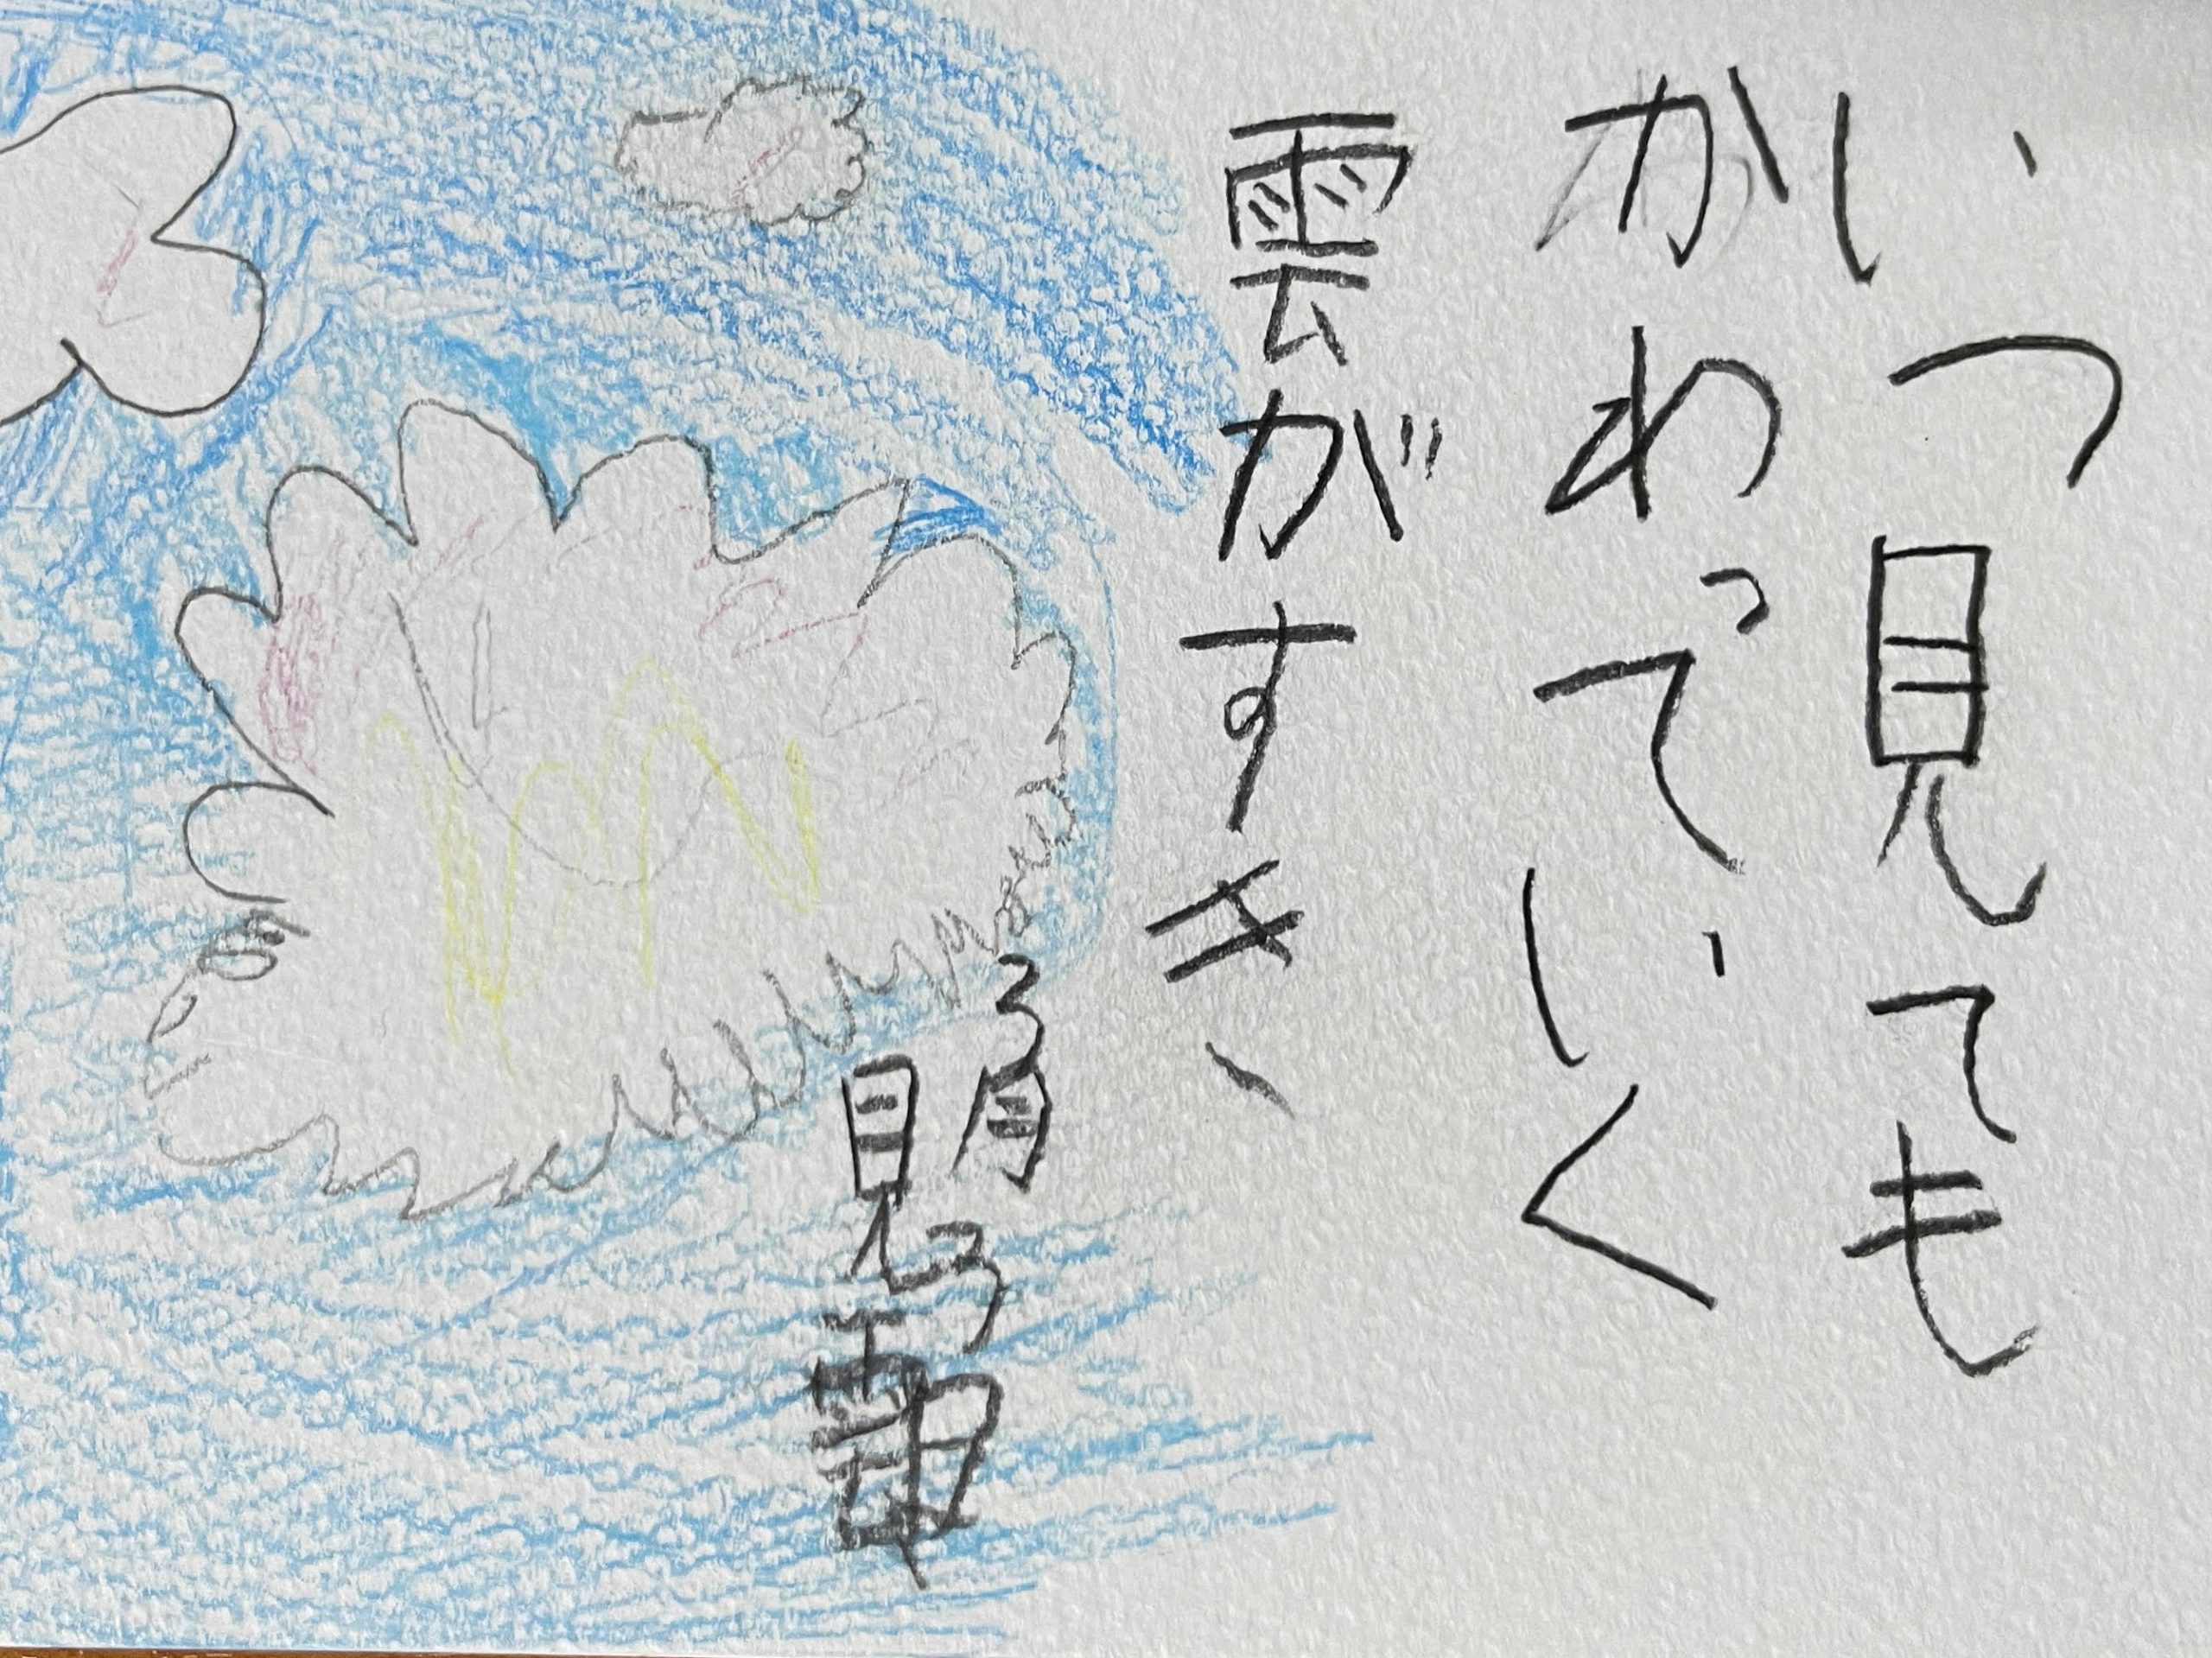 いつ見ても
かわっていく
雲がすき、